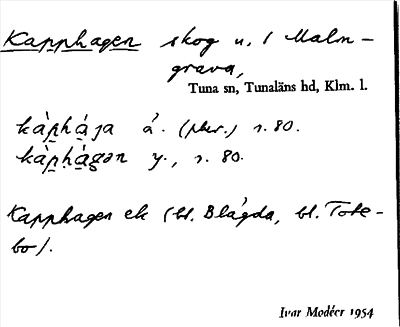 Kapphagen skog u. / Malm-
grava,
Tuna sn, Tunaläns hd, Klm. l.
kàp̠há̠ja ä. (pler.) s. 80.
kàp̠hà̠gən y., s. 80.
Kapphagen ek (bl. Blågda, bl. Tote-
bo).
Ivar Modéer 1954